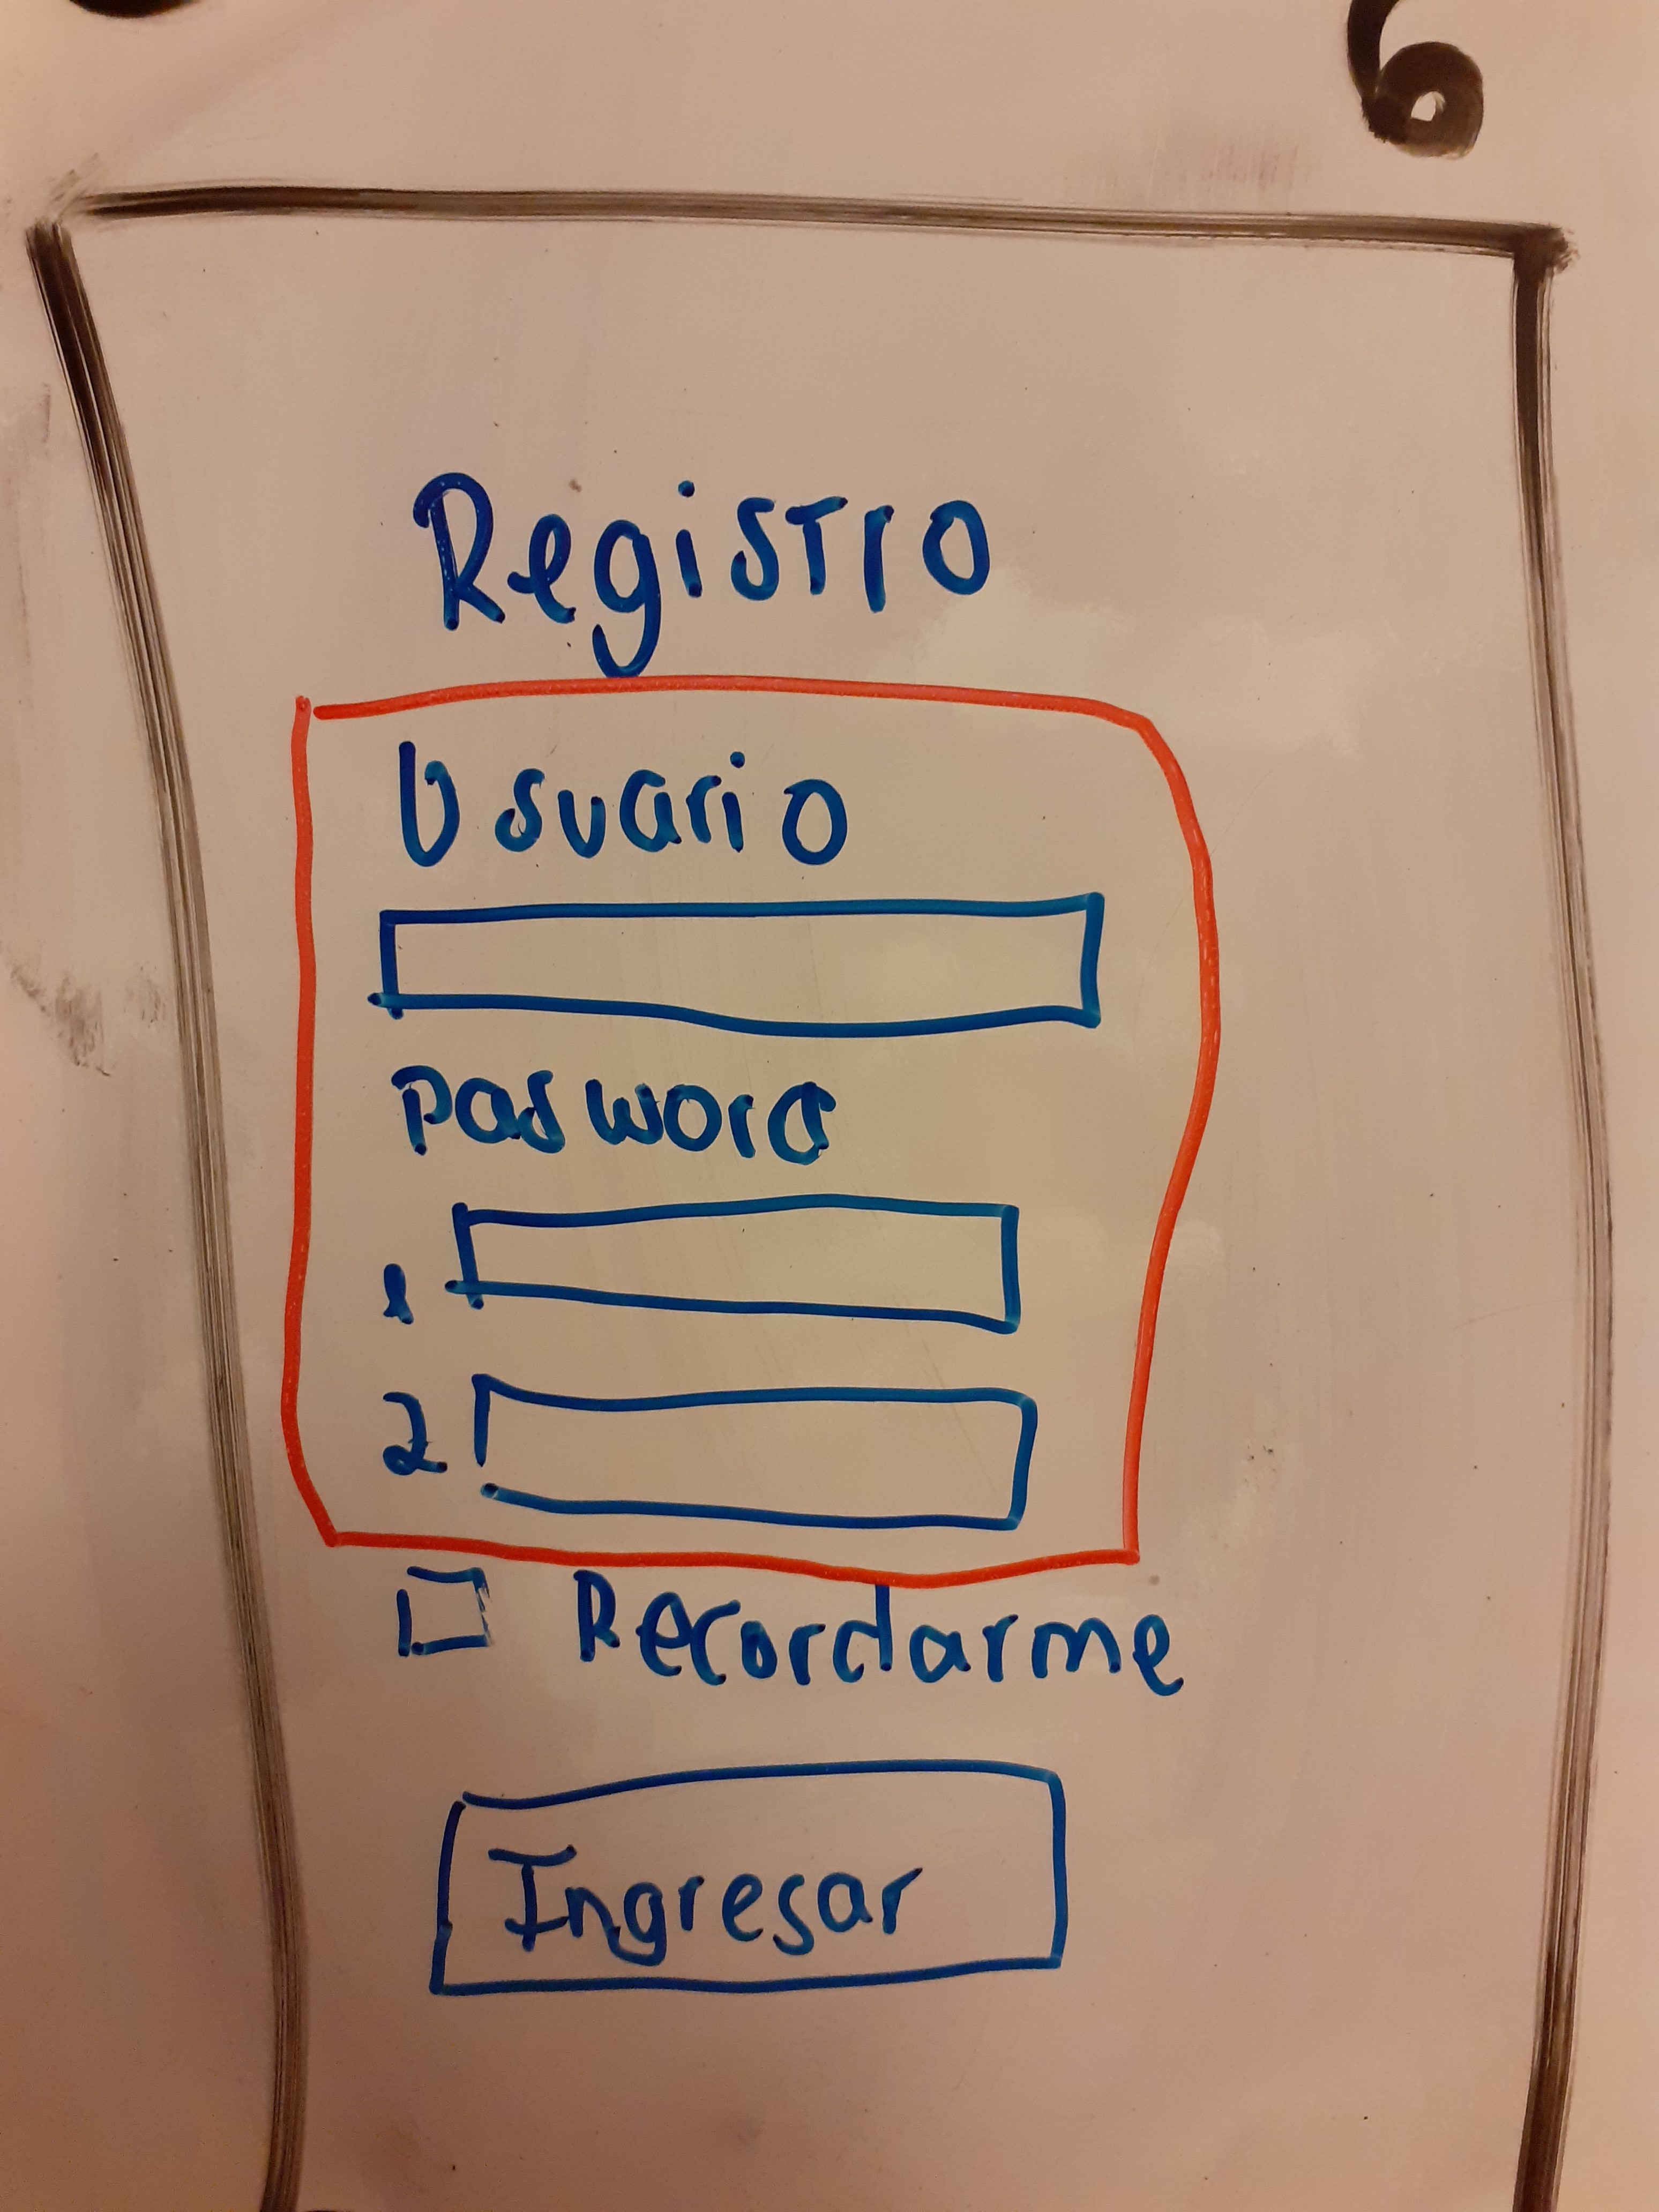 6
Registro
Usuario
Pasword
1
2
Recordarme
Ingresar